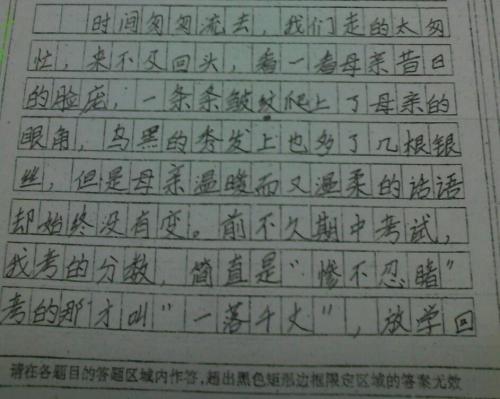 时间匆匆流去，我们走的太匆
忙，来不及回头，看一看母亲昔日
的脸庞，一条条皱纹爬上了母亲的
眼角，乌黑的秀发上也多了几根银
丝，但是母亲温暖而又温柔的话语
却始终没有变。前不久期中考试，
我考的分数，简直是“惨不忍睹”
考的那才叫“一落千丈”，放学回
请在各题目的答题区域内作答，超出黑色矩形边框限定区域的答案无效